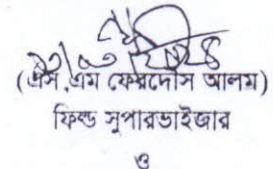 (এস.এম ফেরদৌস আলম)
ফিল্ড সুপারভাইজার
ও